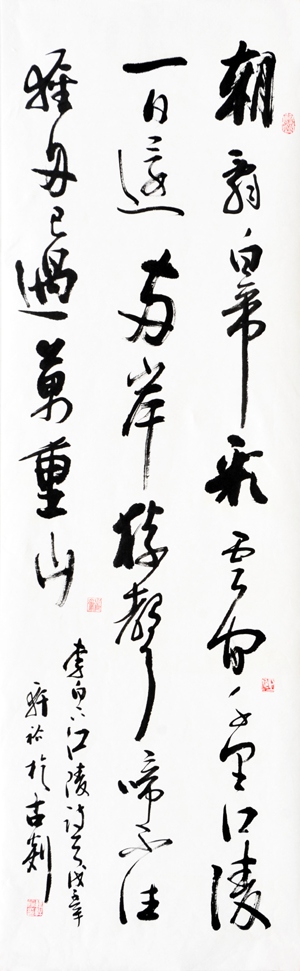 朝辭白帝彩雲間千里江陵
一日還兩岸猿聲啼不住
輕舟已過萬重山
李白下江陵詩
於古剡